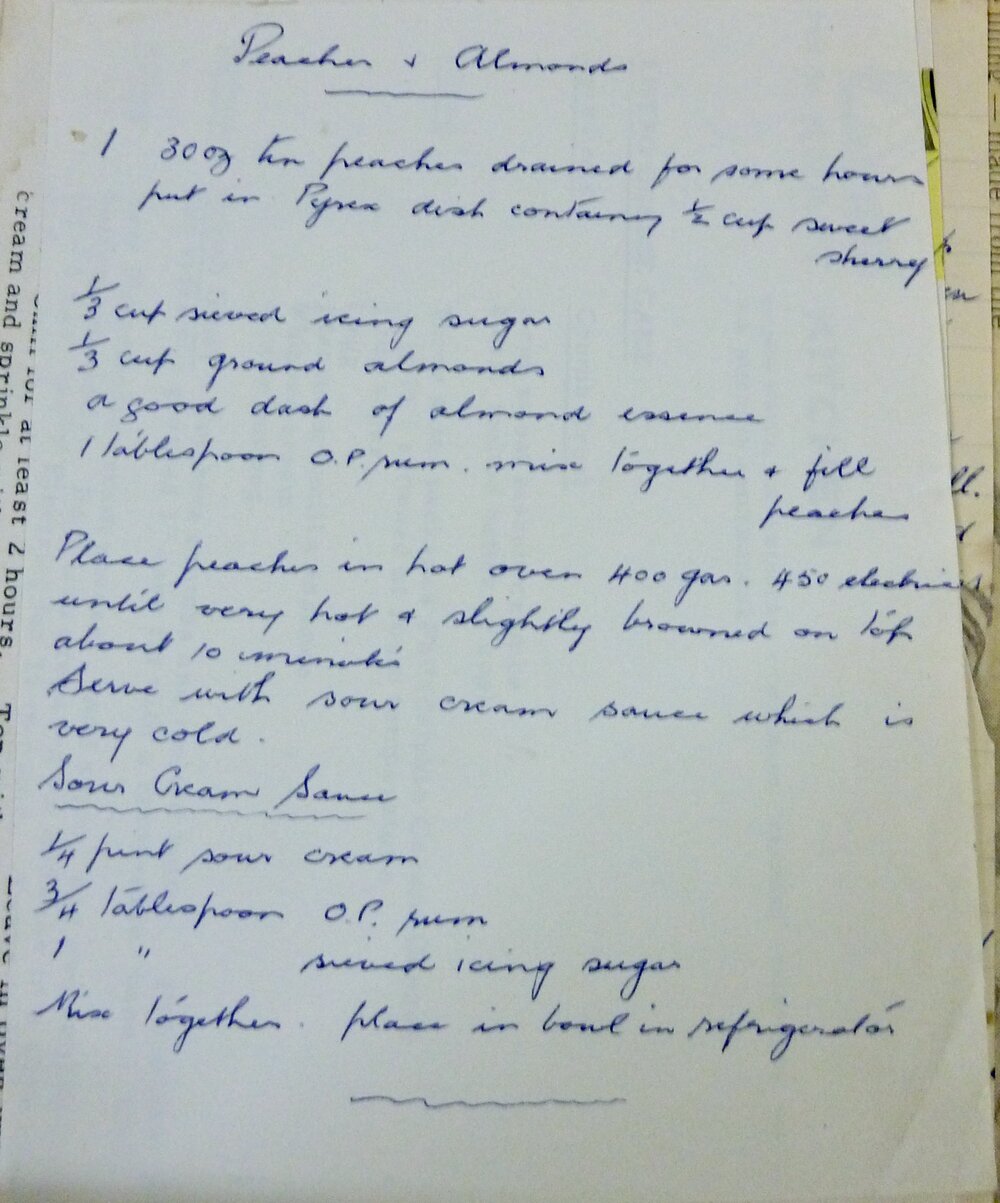 Peaches + Almonds
1 30 oz tin peaches drained for some hours
put in Pyrex dish containing 1/2 cup sweet
sherry
1/3 cup sieved icing sugar
1/3 cup ground almonds
a good dash of almond essence
1 tablespoon O.P. rum. mix together + fill
peaches
Place peaches in hot oven 400 gas. 450 electric
until very hot & slightly browned on top
about 10 minutes
Serve with sour cream sauce which is
very cold.
Sour Cream Sauce
1/4 pint sour cream
3/4 tablespoon O.P. rum
1 " sieved icing sugar
Mix together. place in bowl in refrigerator
for at least 2 hours.
cream and sprinkle